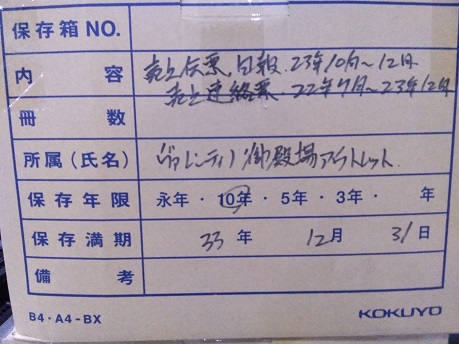 保存箱NO.
内容 売上伝票、日報・23年10月〜12月
売上連絡票・22年7月〜23年12月
冊数
所属(氏名) ヴァレンティノ御殿場アウトレット
保存年限 永年・10年・5年・3年・ 年
保存満期 33年 12月 31日
備考
B4・A4-BX KOKUYO